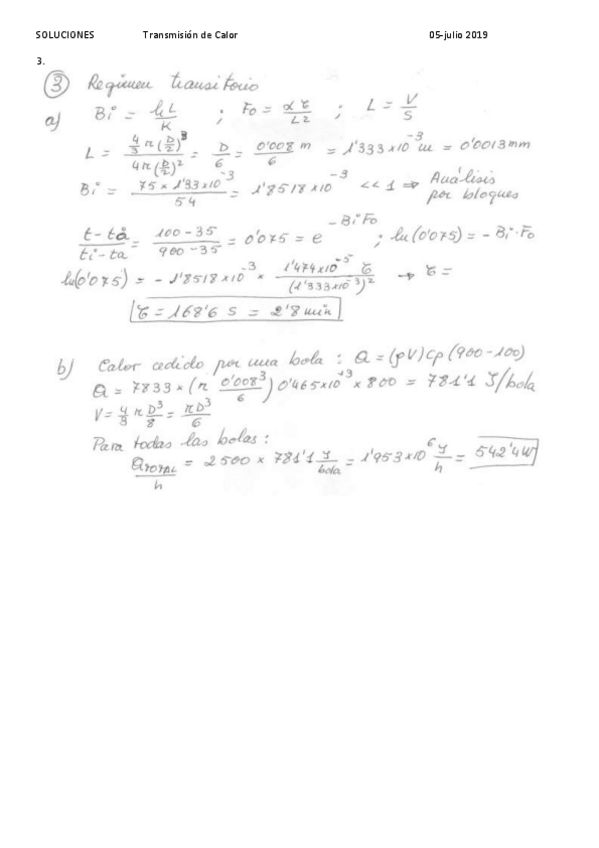 SOLUCIONES Transmisión de Calor 05-julio 2019
3.
③ Regimen transitorio
a) Bi = hL/K ; Fo = ατ/L2 ; L = V/S
L = 4/3 π(D/2)³ / 4π(D/2)² = D/6 = 0'008/6 m = 1'333x10⁻³ m = 0'0013mm
Bi = 75 x 1'33x10⁻³ / 54 = 1'8518x10⁻³ << 1 ⇒ Análisis por bloques
t-ta/ti-ta = 100-35/900-35 = 0'075 = e^-Bi·Fo ; ln(0'075) = -Bi·Fo
ln(0'075) = -1'8518x10⁻³ x 1'474x10⁻⁵ τ/(1'333x10⁻³)² → τ =
τ = 168'6 s = 2'8 min
b) Calor cedido por una bola : Q = (ρV)Cp(900-100)
Q = 7833 x (π 0'008³/6) 0'465x10⁺³ x 800 = 781'1 J/bola
V = 4/3 π D³/8 = πD³/6
Para todas las bolas :
QTOTAL/h = 2500 x 781'1 J/bola = 1'953x10⁶ J/h = 542'4W